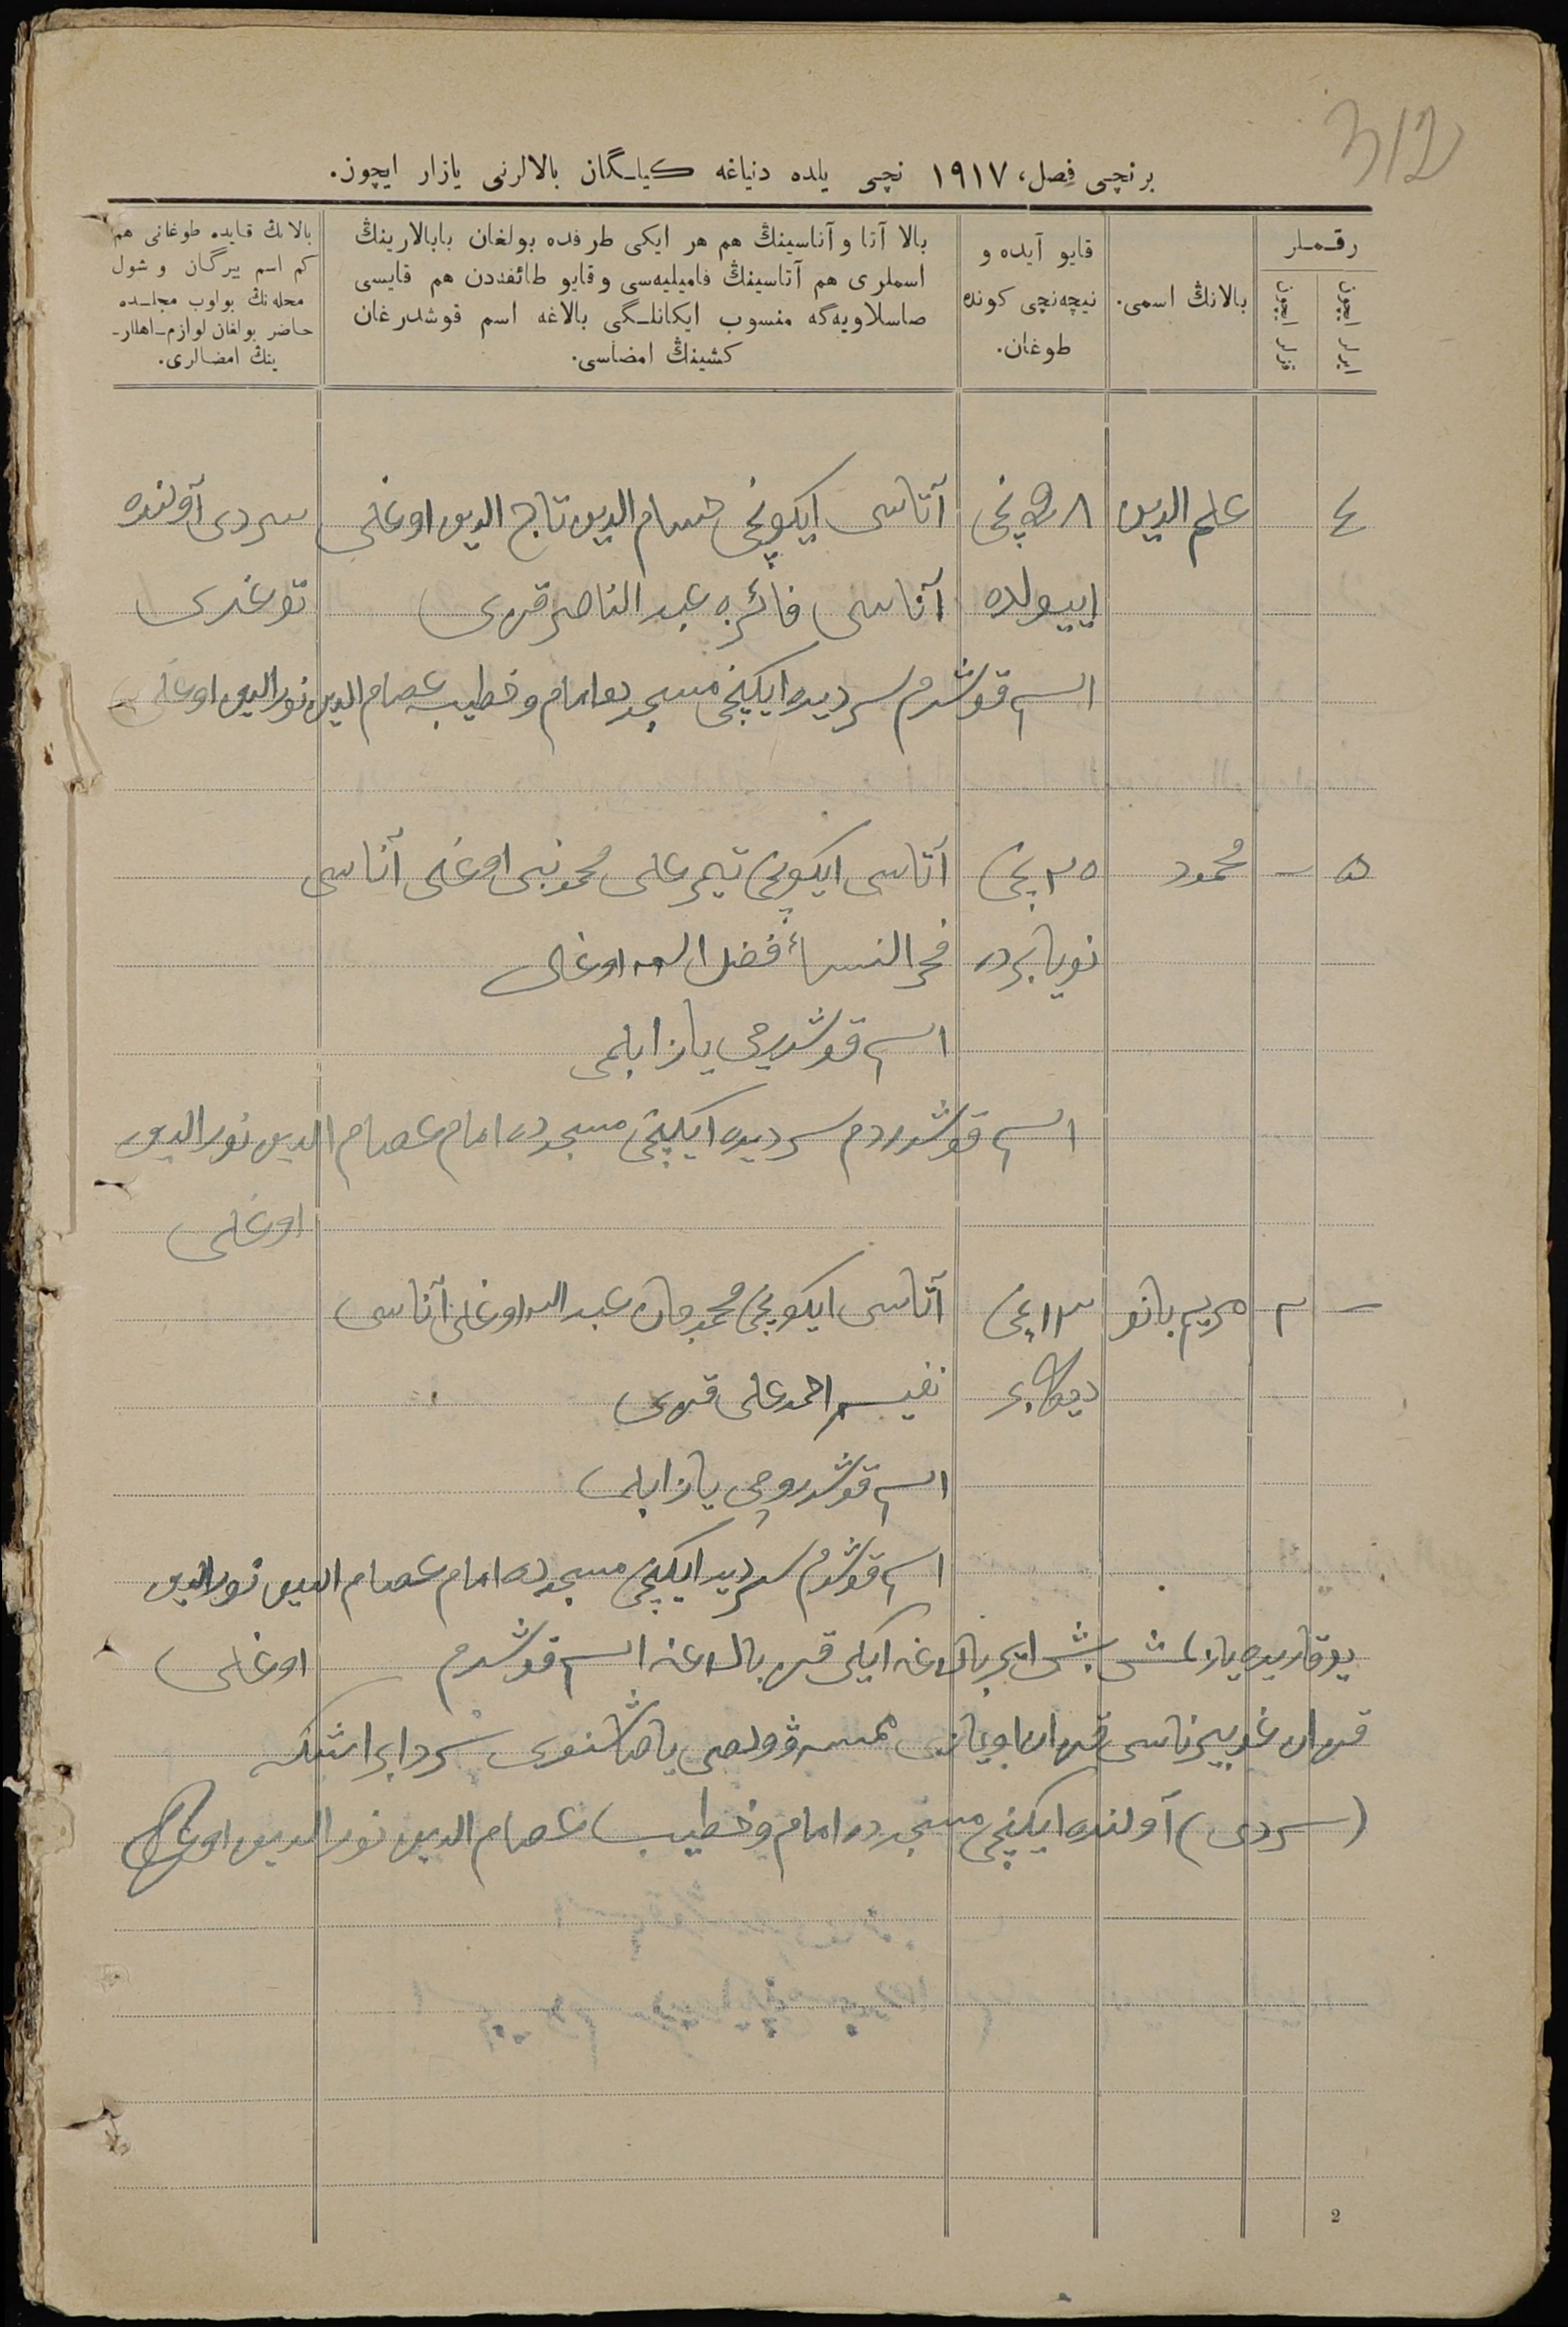 312
برنچی فصل، ١٩١٧ نچی یلده دنیاغه کیلـگان بالالرنی یازار ایچون.
رقـملر
ایرلر ایچون
قزلر ایچون
بالانڭ اسمی.
قایو آیده و
نیچه‌نچی کونده
طوغان.
بالا آتا و آناسینڭ هم هر ایکی طرفده بولغان بابالارینڭ
اسملری هم آتاسینڭ فامیلیه‌سی وقایو طائفه‌دن هم قایسی
صاسلاویه‌گه منسوب ایکانلـگی بالاغه اسم قوشدرغان
کشینڭ امضاسی.
بالانڭ قایده طوغانی هم
کم اسم بیرگان و شول
محله‌نڭ بولوب مجلـسده
حاضر بولغان لوازم‌ـاهللرـ
ینڭ امضالری.
٤ علم الدین ٨ نچی آتاسی ایکونچی حسام الدین تاج الدین اوغلی سردی آولنده
اییولده آناسی فائزه عبد الناصر قزی توغدی
اسم قوشدم سردیده ایکنچی مسجدده امام وخطیب عصام الدین نورالدین اوغلی
٥ – محمود ٢٥ نچی آتاسی ایکونچی تیمرعلی محمدنبی اوغلی آناسی
نویابرده فخر النساء فضل الله اوغلی
اسم قوشدرچی یازا بلمی
اسم قوشدردم سردیده ایکنچی مسجدده امام عصام الدین نورالدین
اوغلی
– ٢ مریم بانو ١٣ نچی آتاسی ایکونچی محمدجان عبد الله اوغلی آناسی
دیکابر نفیسه احمدعلی قزی
اسم قوشدروچی یازا بلمی
اسم قوشدم سردیده ایکنچی مسجدده امام عصام الدین نورالدین
یوقاریده یازلمش بش ایر بالاغه ایکی قز بالاغه اسم قوشدم اوغلی
قزان غوبیرناسی قزان اویازی
(سردی) آولنده ایکنچی مسجدده امام وخطیب عصام الدین نورالدین اوغلی
2